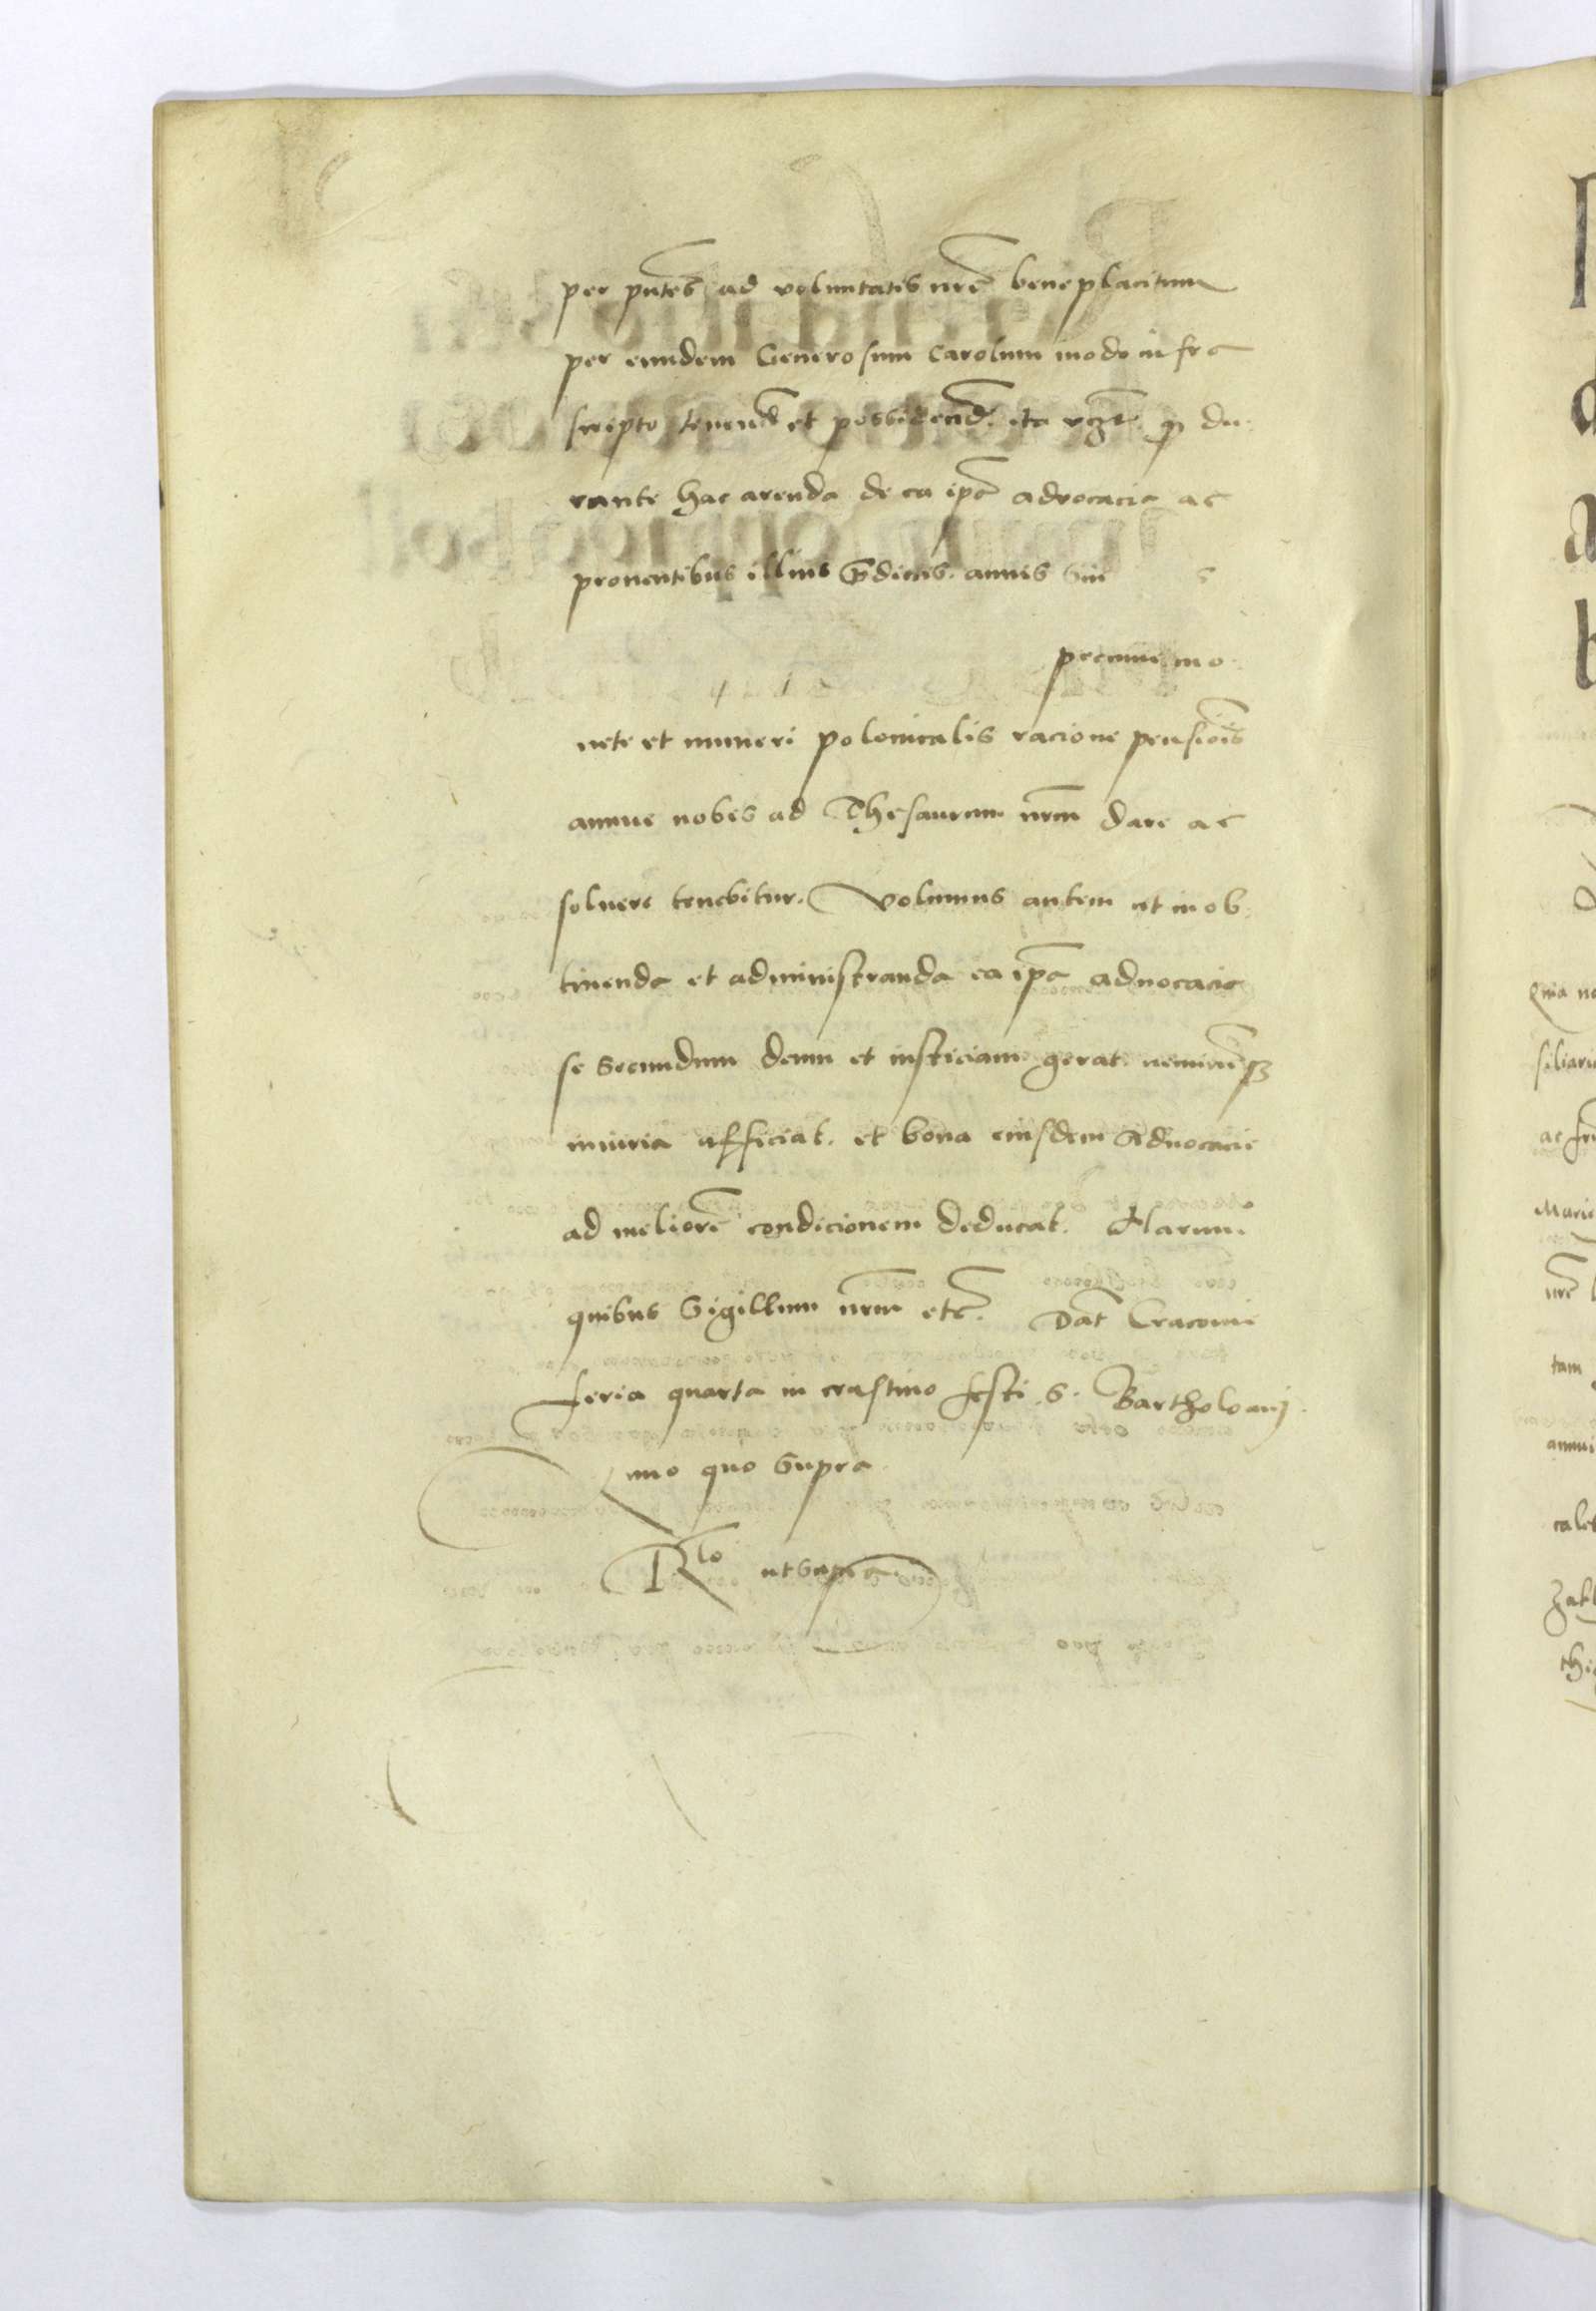 per pñtes ad voluntatis nrẽ beneplacitum
per eundem Generosum Carolum modo infra
scripto tenend̃ et possidend̃. ita vcz̃t. q̃ du-
rante hac arenda de ea ip̃a advocacia ac
proventibus illius p̃dictis. annis sin s
pecunie mo-
nete et numeri polonicalis racione pensiõis
annue nobis ad Thesaurum nr̃m dare ac
soluere tenebitur. Volumus autem ut in ob-
tinenda et administranda ea ip̃a aduocacia
se secundum deum et iusticiam gerat. neminẽqʒ
iniuria afficiat. et bona eiusdem Aduocacie
ad meliorẽ condicionem deducat. Harum
quibus Sigillum nr̃m etc̃. Dat̃ Cracouie
feria quarta in crastino festi .S. Bartholomej.
Anno quo supra
R̃lo ut supra
Quia no
siliari
ac fr
Marie
nrẽ
tam
annui
cales
Zakl
thi